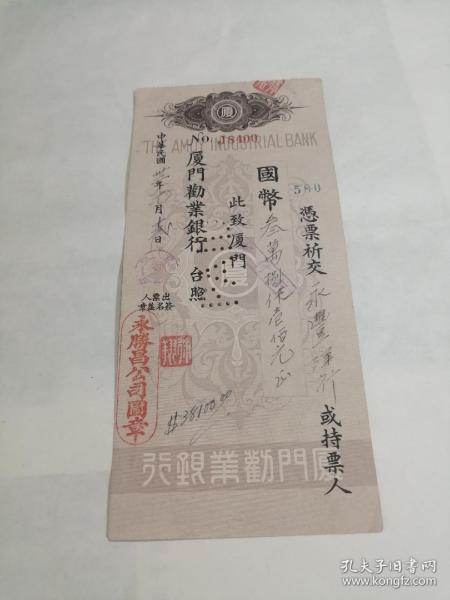 廈
No. J8400
THE AMOY INDUSTRIAL BANK
580
憑票祈交永豐洋行或持票人
國幣叁萬捌仟壹佰元正
此致廈門
廈門勸業銀行 台照
中華民國卅年 月 日
出票人
簽名蓋章
永勝昌公司圖章
$38100.00
廈門勸業銀行
孔夫子旧书网
www.kongfz.com